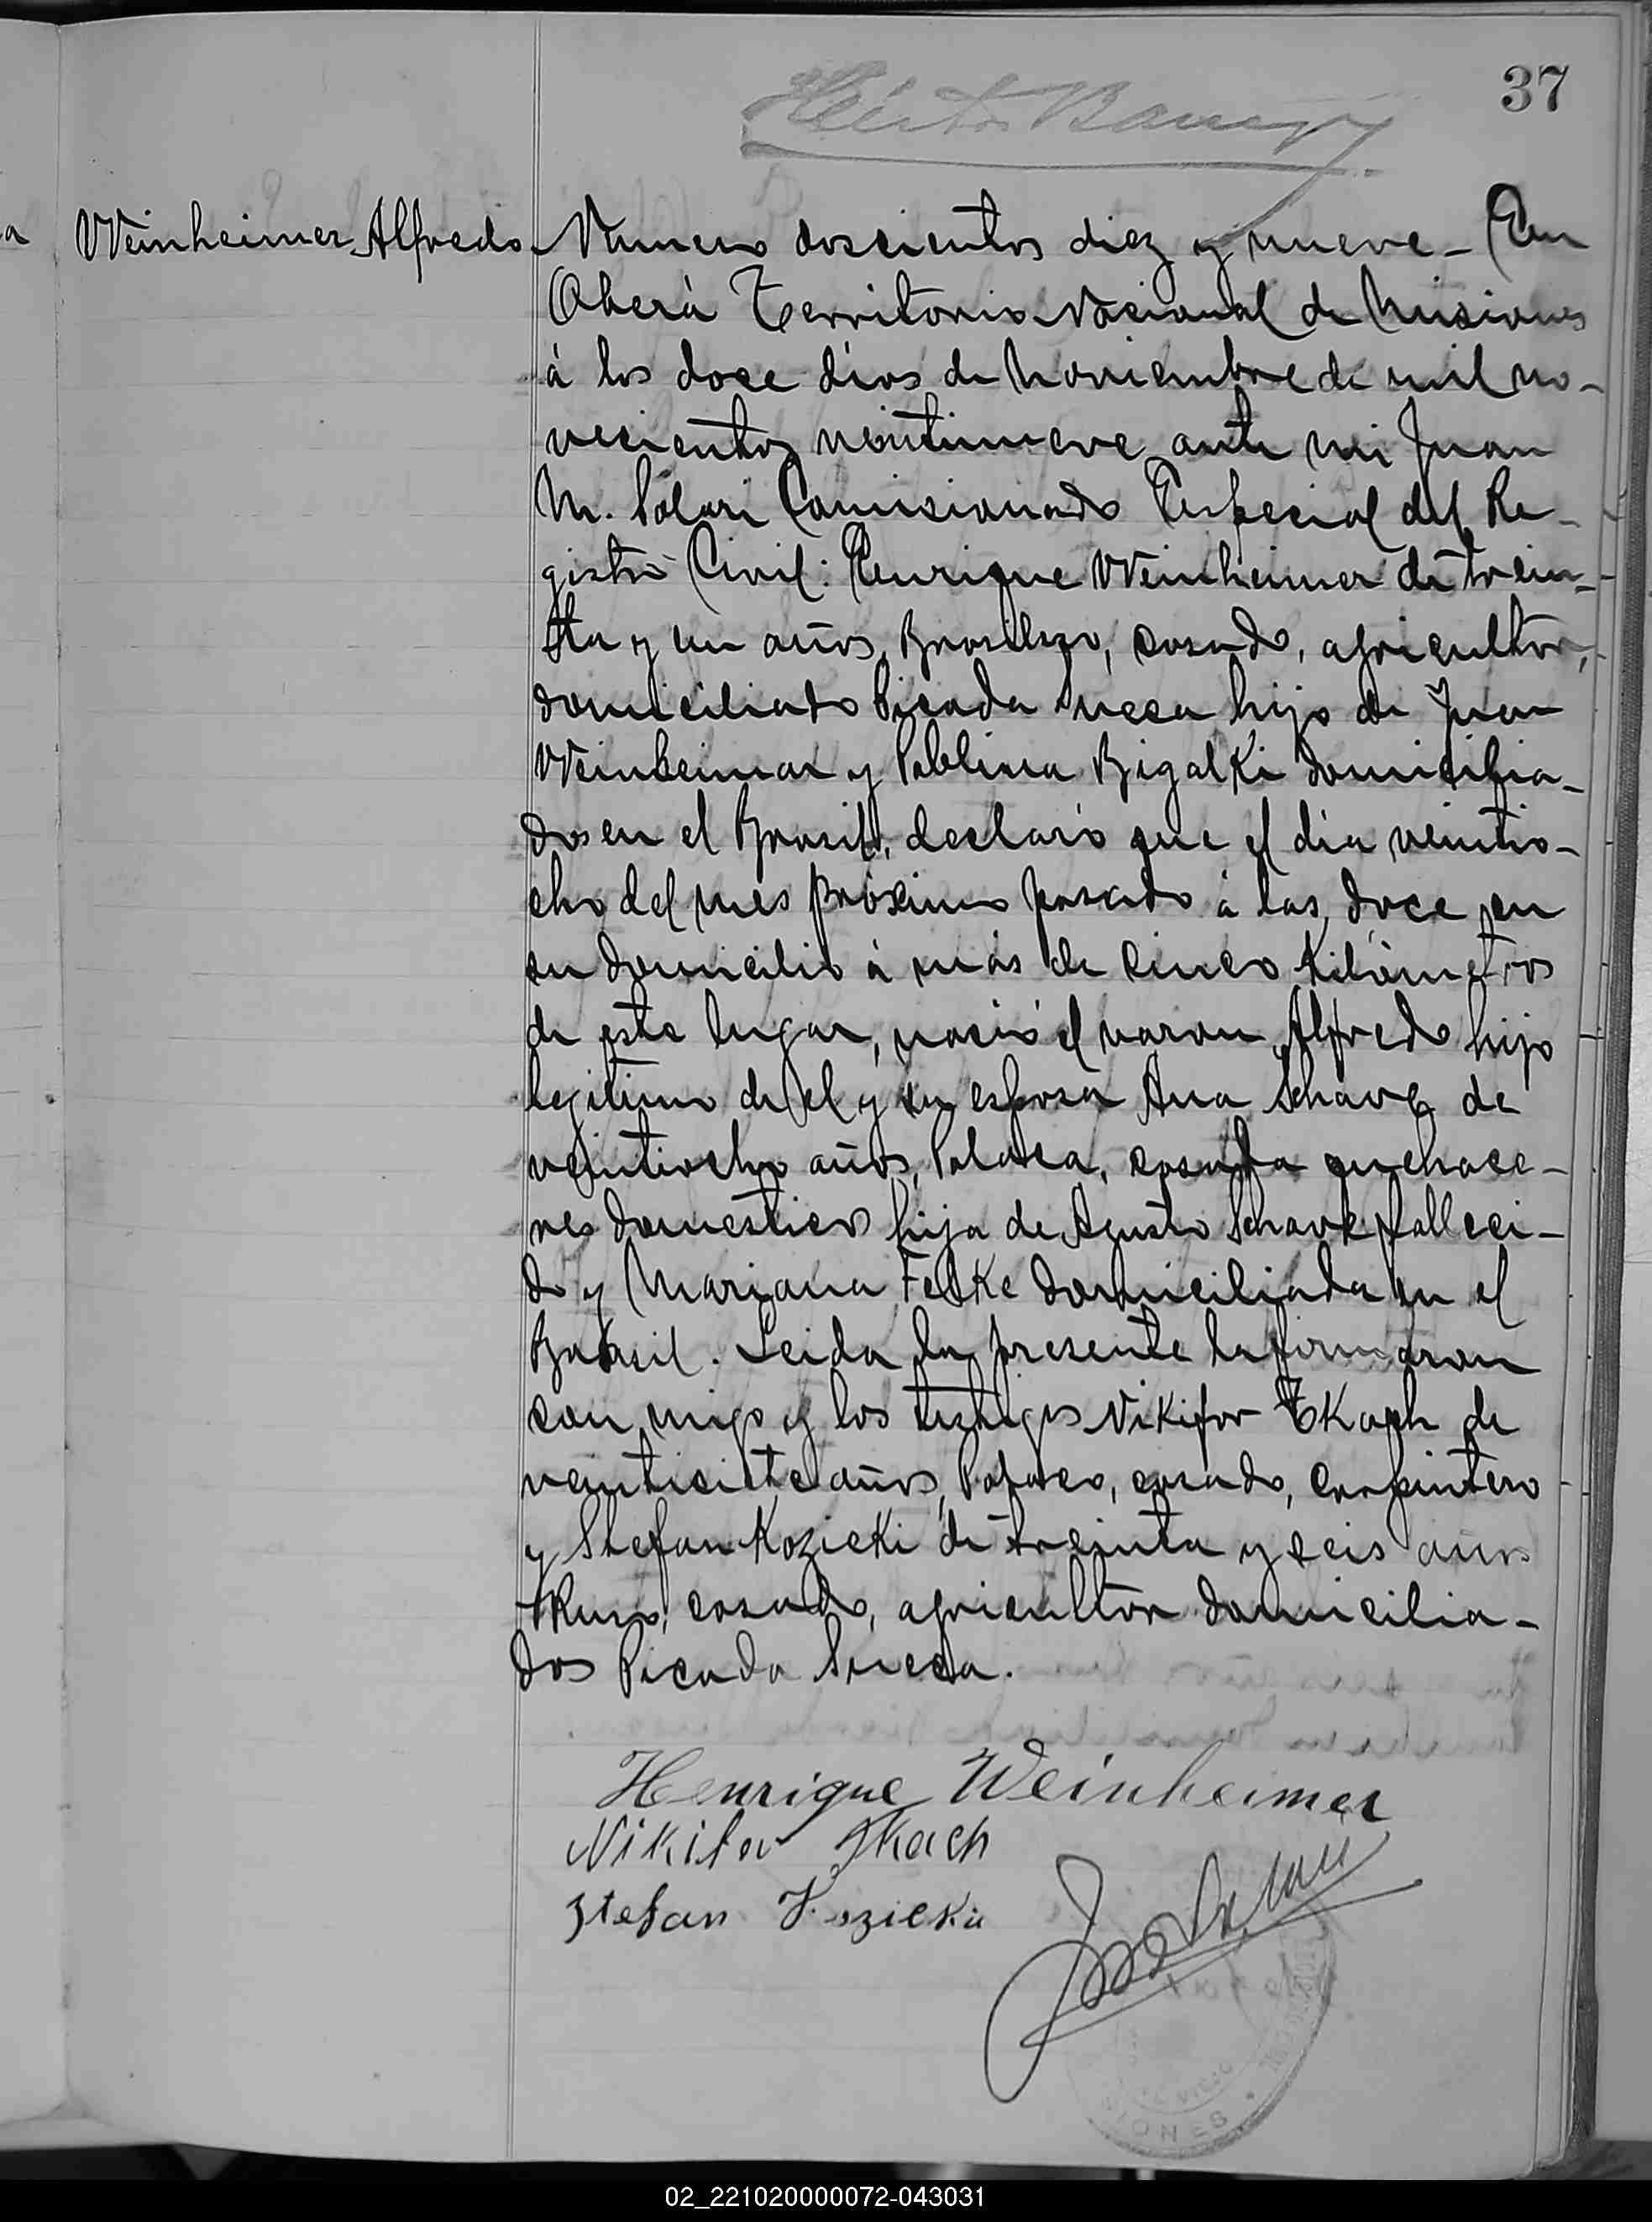 37
Héctor
Weinheimer Alfredo
Numero doscientos diez y nueve - En
Oberá Territorio Nacional de Misiones
á los doce dias de Noviembre de mil no-
vecientos veintinueve ante mi Juan
M. Polari Comisionado Especial del Re-
gistro Civil: Henrique Weinheimer de trein-
ta y un años, Brasilero, casado, agricultor,
domiciliado Picada Sueca hijo de Juan
Weinheimer y Pablina Bigalki domicilia-
dos en el Brasil, declaró que el dia veintio-
cho del mes próximo pasado á las doce en
su domicilio á más de cinco Kilómetros
de este lugar, nació el varon Alfredo hijo
legitimo de el y su esposa Ana de
veintiocho años, Polaca, casada quehace-
res domesticos hija de Agusto falleci-
do y Mariana Felke domiciliada en el
Brasil. Leida la presente la firmaron
con migo y los testigos Nikifor Tkach de
veintisiete años, Polaco, casado, carpintero
y Stefan Kozicki de treinta y seis años
Ruso, casado, agricultor domicilia-
dos Picada Sueca.
Henrique Weinheimer
Nikifor Tkach
Stefan Kozicki
CIVIL
MISIONES
02_221020000072-043031